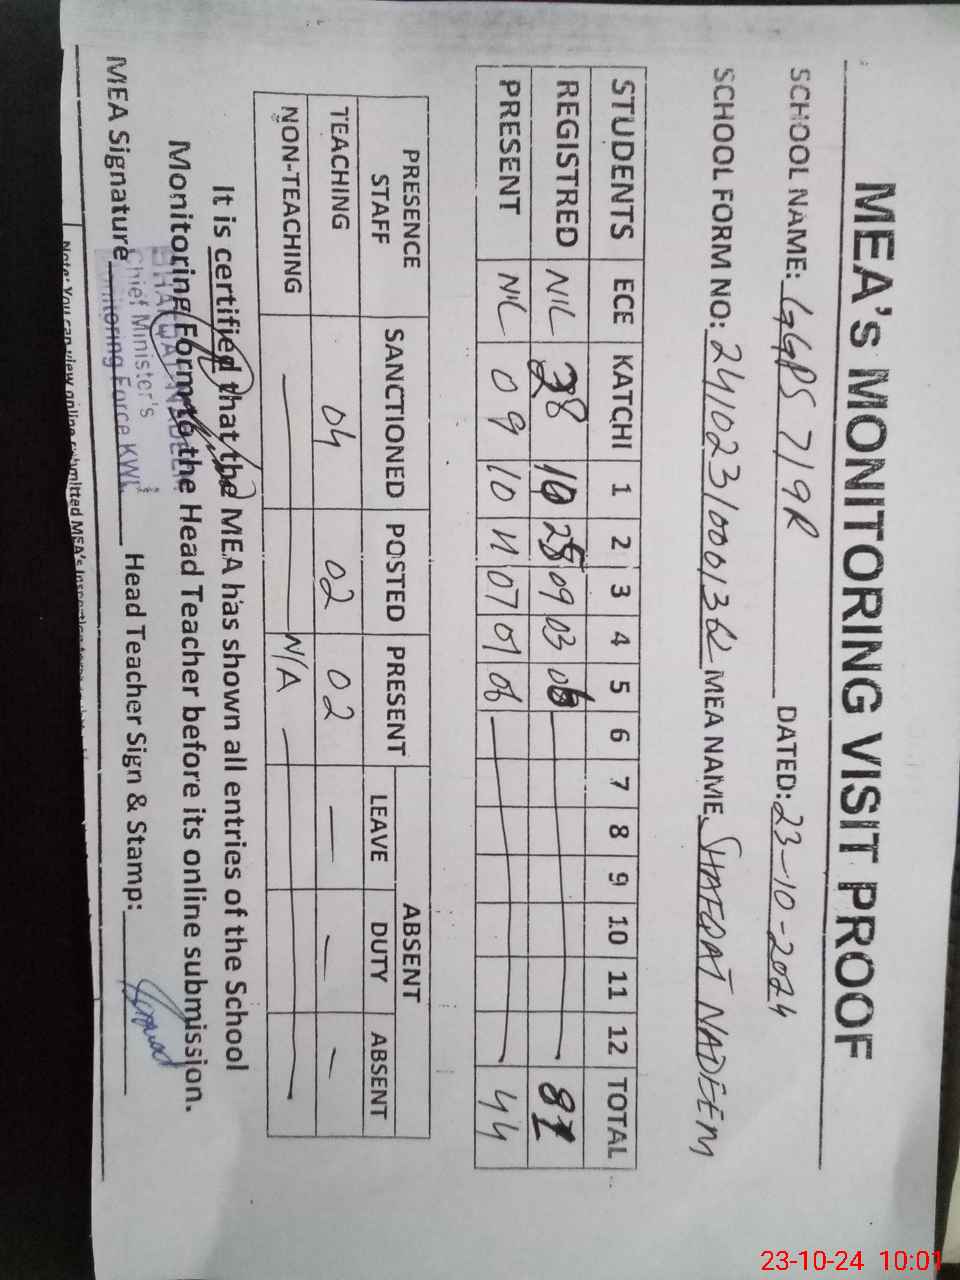 MEA's MONITORING VISIT PROOF
SCHOOL NAME: GGPS 7/9R DATED: 23-10-2024
SCHOOL FORM NO: MEA NAME, SHAFQAT NADEEM
STUDENTS ECE KATCHI 1 2 3 4 5 6 7 8 9 10 11 12 TOTAL
REGISTRED NIL 38 10 09 03
PRESENT NIL 09 10 11 07 01 06 44
PRESENCE STAFF SANCTIONED POSTED PRESENT ABSENT
LEAVE DUTY ABSENT
TEACHING 04 02 02 — — —
NON-TEACHING — N/A —
It is certified that the MEA has shown all entries of the School
Monitoring Form to the Head Teacher before its online submission.
MEA Signature Head Teacher Sign & Stamp:
Chief Minister's
Monitoring Force KWL
Note: You can view online submitted MEA's
23-10-24 10:01